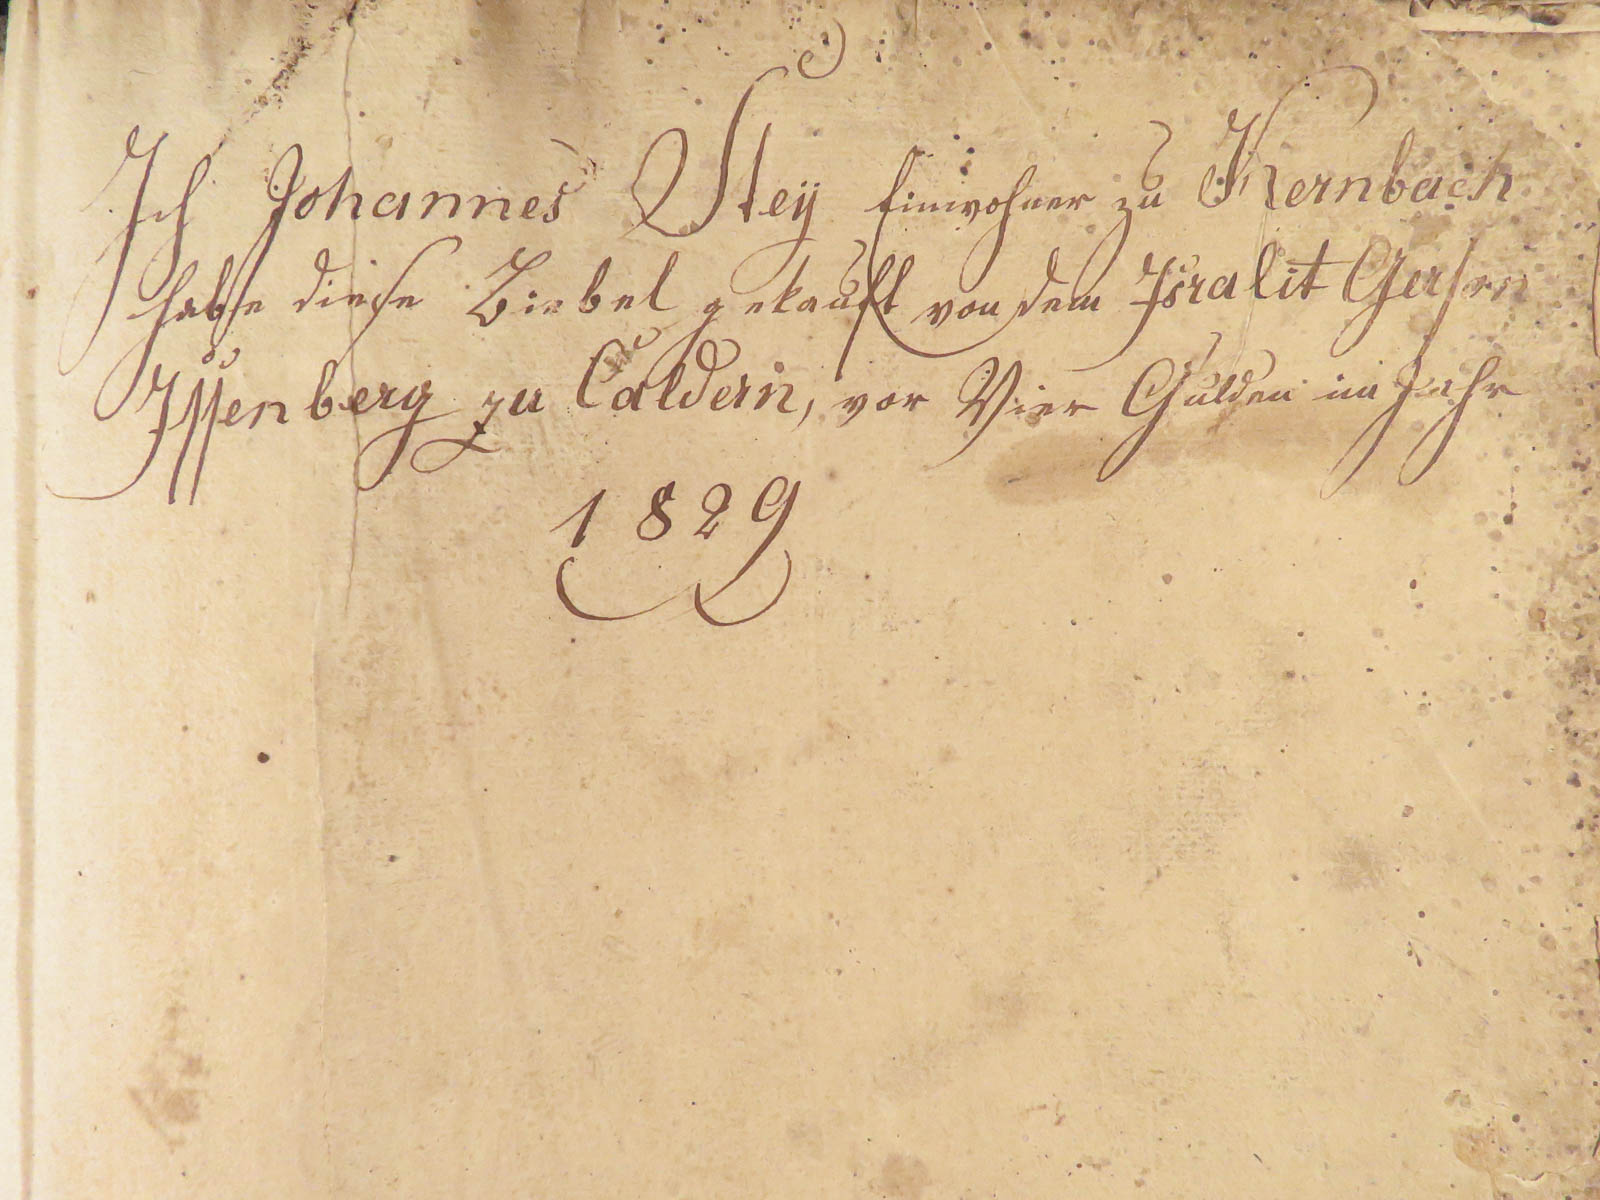 Ich Johannes Steÿ Einwohner zu Kernbach
habe diese Biebel gekauft von dem Isralit Gerson
Issenberg zu Caldern, vor Vier Gulden im Jahr
1829